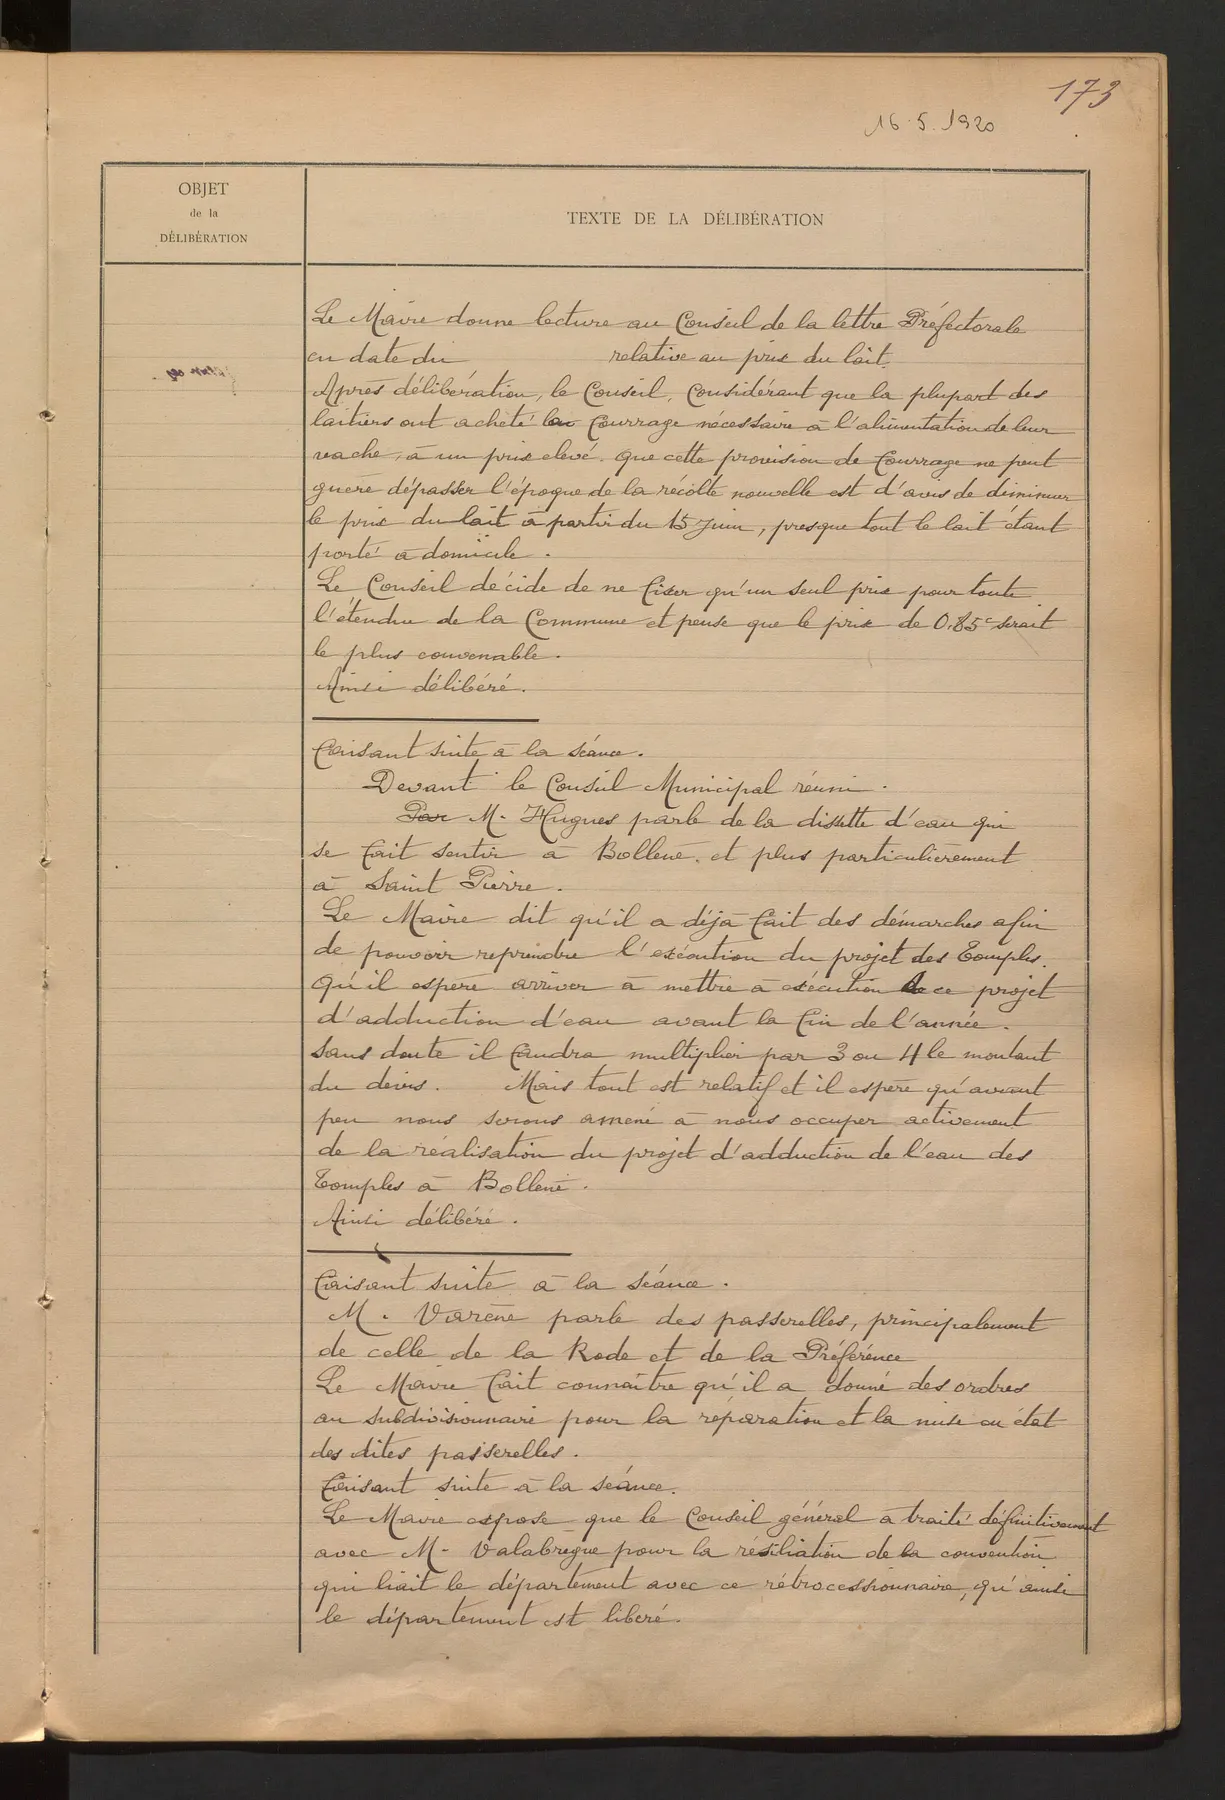 173
16.5.1920
OBJET
de la
DÉLIBÉRATION
TEXTE DE LA DÉLIBÉRATION
Le Maire donne lecture au Conseil de la lettre Préfectorale
en date du relative au prix du lait.
Après délibération, le Conseil, Considérant que la plupart des
laitiers ont acheté le fourrage nécessaire à l'alimentation de leur
vache, à un prix elevé. Que cette provision de fourrage ne peut
guere dépasser l'époque de la récolte nouvelle est d'avis de diminuer
le prix du lait à partir du 15 Juin, presque tout le lait étant
porté a domicile.
Le Conseil décide de ne fixer qu'un seul prix pour toute
l'étendue de la Commune et pense que le prix de 0.85c serait
le plus convenable.
Ainsi délibéré.
Faisant suite à la séance.
Devant le Conseil Municipal réuni.
Par M. Hugues parle de la disette d'eau qui
se fait sentir à Bollene, et plus particulièrement
à Saint Pierre.
Le Maire dit qu'il a déjà fait des démarches afin
de pouvoir reprendre l'exécution du projet des Temples.
Qu'il espère arriver à mettre à exécution ce projet
d'adduction d'eau avant la fin de l'année.
Sans doute il faudra multiplier par 3 ou 4 le montant
du devis. Mais tout est relatif et il espère qu'avant
peu nous serons amené à nous occuper activement
de la réalisation du projet d'adduction de l'eau des
Temples à Bollene.
Ainsi délibéré.
Faisant suite à la séance.
M. Varène parle des passerelles, principalement
de celle de la Rode et de la Préférence
Le Maire fait connaître qu'il a donné des ordres
au subdivisionnaire pour la réparation et la mise en état
des dites passerelles.
Faisant suite à la séance.
Le Maire expose que le Conseil général a traité définitivement
avec M. Valabrègue pour la résiliation de la convention
qui liait le département avec ce rétrocessionnaire, qu'ainsi
le département est libéré.